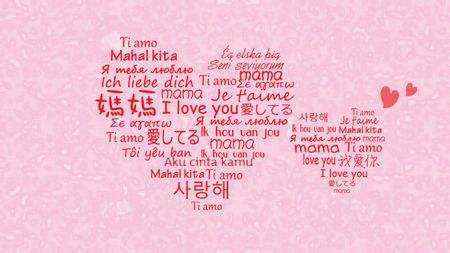 Ti amo
Mahal kita
Ég elska þig
Я тебя люблю
Seni seviyorum
mama
Ich liebe dich
Ti amo
Σε αγαπω
mama
Je t'aime
媽媽
I love you
愛してる
Σε αγαπω
Я тебя люблю
mama
Ti amo
愛してる
Ik hou van jou
mama
Tôi yêu bạn
Ik hou van jou
Aku cinta kamu
Mahal kita
Ti amo
mama
사랑해
Ti amo
Ti amo
사랑해
Je t'aime
Ik hou van jou
Mahal kita
Я тебя люблю
mama
mama
Ti amo
love you
我爱你
I love you
愛してる
mama